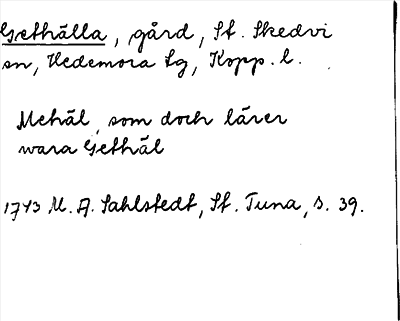 Gethälla, gård, St. Skedvi
sn, Hedemora tg, Kopp. l.
Mehäl, som doch lärer
wara Gethäl
1743 M. A. Sahlstedt, St. Tuna, s. 39.